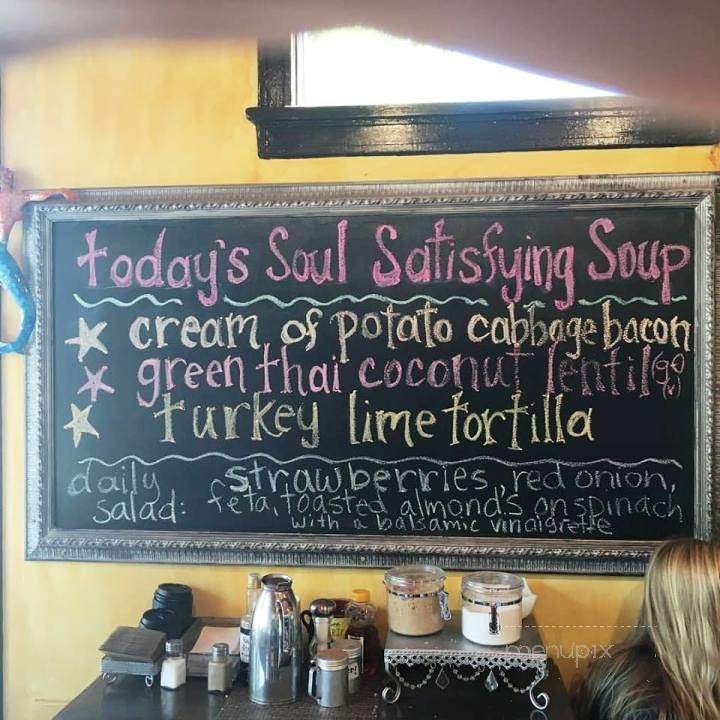 today's Soul Satisfying Soup
cream of potato cabbage bacon
green thai coconut lentil
turkey lime tortilla
daily salad:
strawberries, red onion,
feta, toasted almond's on spinach
with a balsamic vinaigrette
menupix